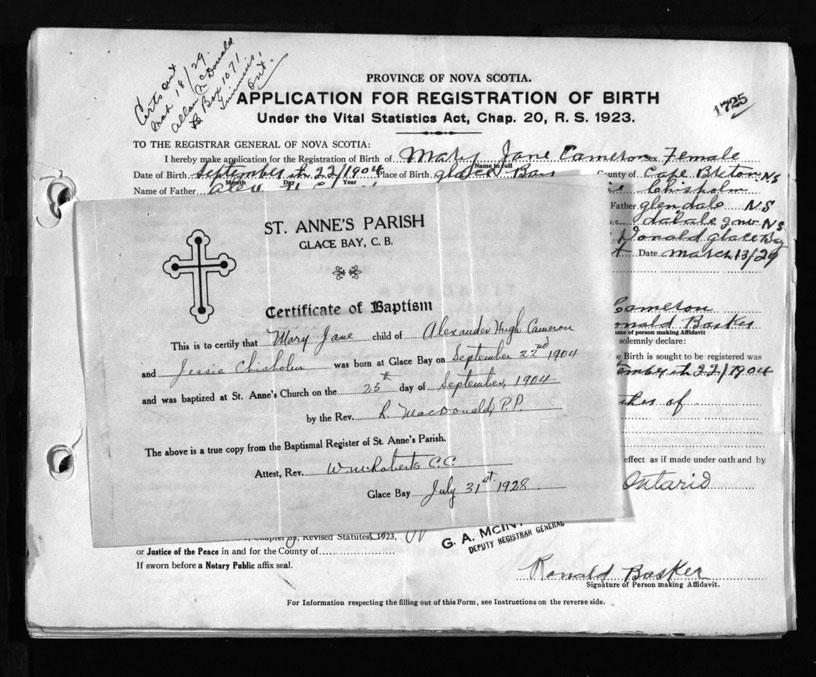 Certs out
Mch 18/29.
Allan McDonald
Box 1071
Timmins,
Ont.
1725
PROVINCE OF NOVA SCOTIA.
APPLICATION FOR REGISTRATION OF BIRTH
Under the Vital Statistics Act, Chap. 20, R. S. 1923.
TO THE REGISTRAR GENERAL OF NOVA SCOTIA:
I hereby make application for the Registration of Birth of Mary Jane Cameron Sex Female
Name in Full
Date of Birth September th 22/1904 Place of Birth glace Bay County of Cape Breton NS
Month Day Year
Name of Father Alex H C Chisholm
Father glendale N.S
NS
Donald glace Bay
Date March 13/29
Cameron
Ronald Basker
me of person making Affidavit
solemnly declare:
e Birth is sought to be registered was
ember th 22/1904
of
effect as if made under oath and by
Ontario
ST. ANNE'S PARISH
GLACE BAY, C. B.
Certificate of Baptism
This is to certify that Mary Jane child of Alexander Hugh Cameron
and Jessie Chisholm was born at Glace Bay on September 22nd 1904
and was baptized at St. Anne's Church on the 25th day of September, 1904
by the Rev. R. MacDonald, P.P.
The above is a true copy from the Baptismal Register of St. Anne's Parish.
Attest, Rev. Wm Roberts C.C.
Glace Bay July 31st 1928
Revised Statutes, 1923,
G. A. McIN
DEPUTY REGISTRAR GENERAL
or Justice of the Peace in and for the County of
If sworn before a Notary Public affix seal.
Ronald Basker
Signature of Person making Affidavit.
For Information respecting the filling out of this Form, see Instructions on the reverse side.